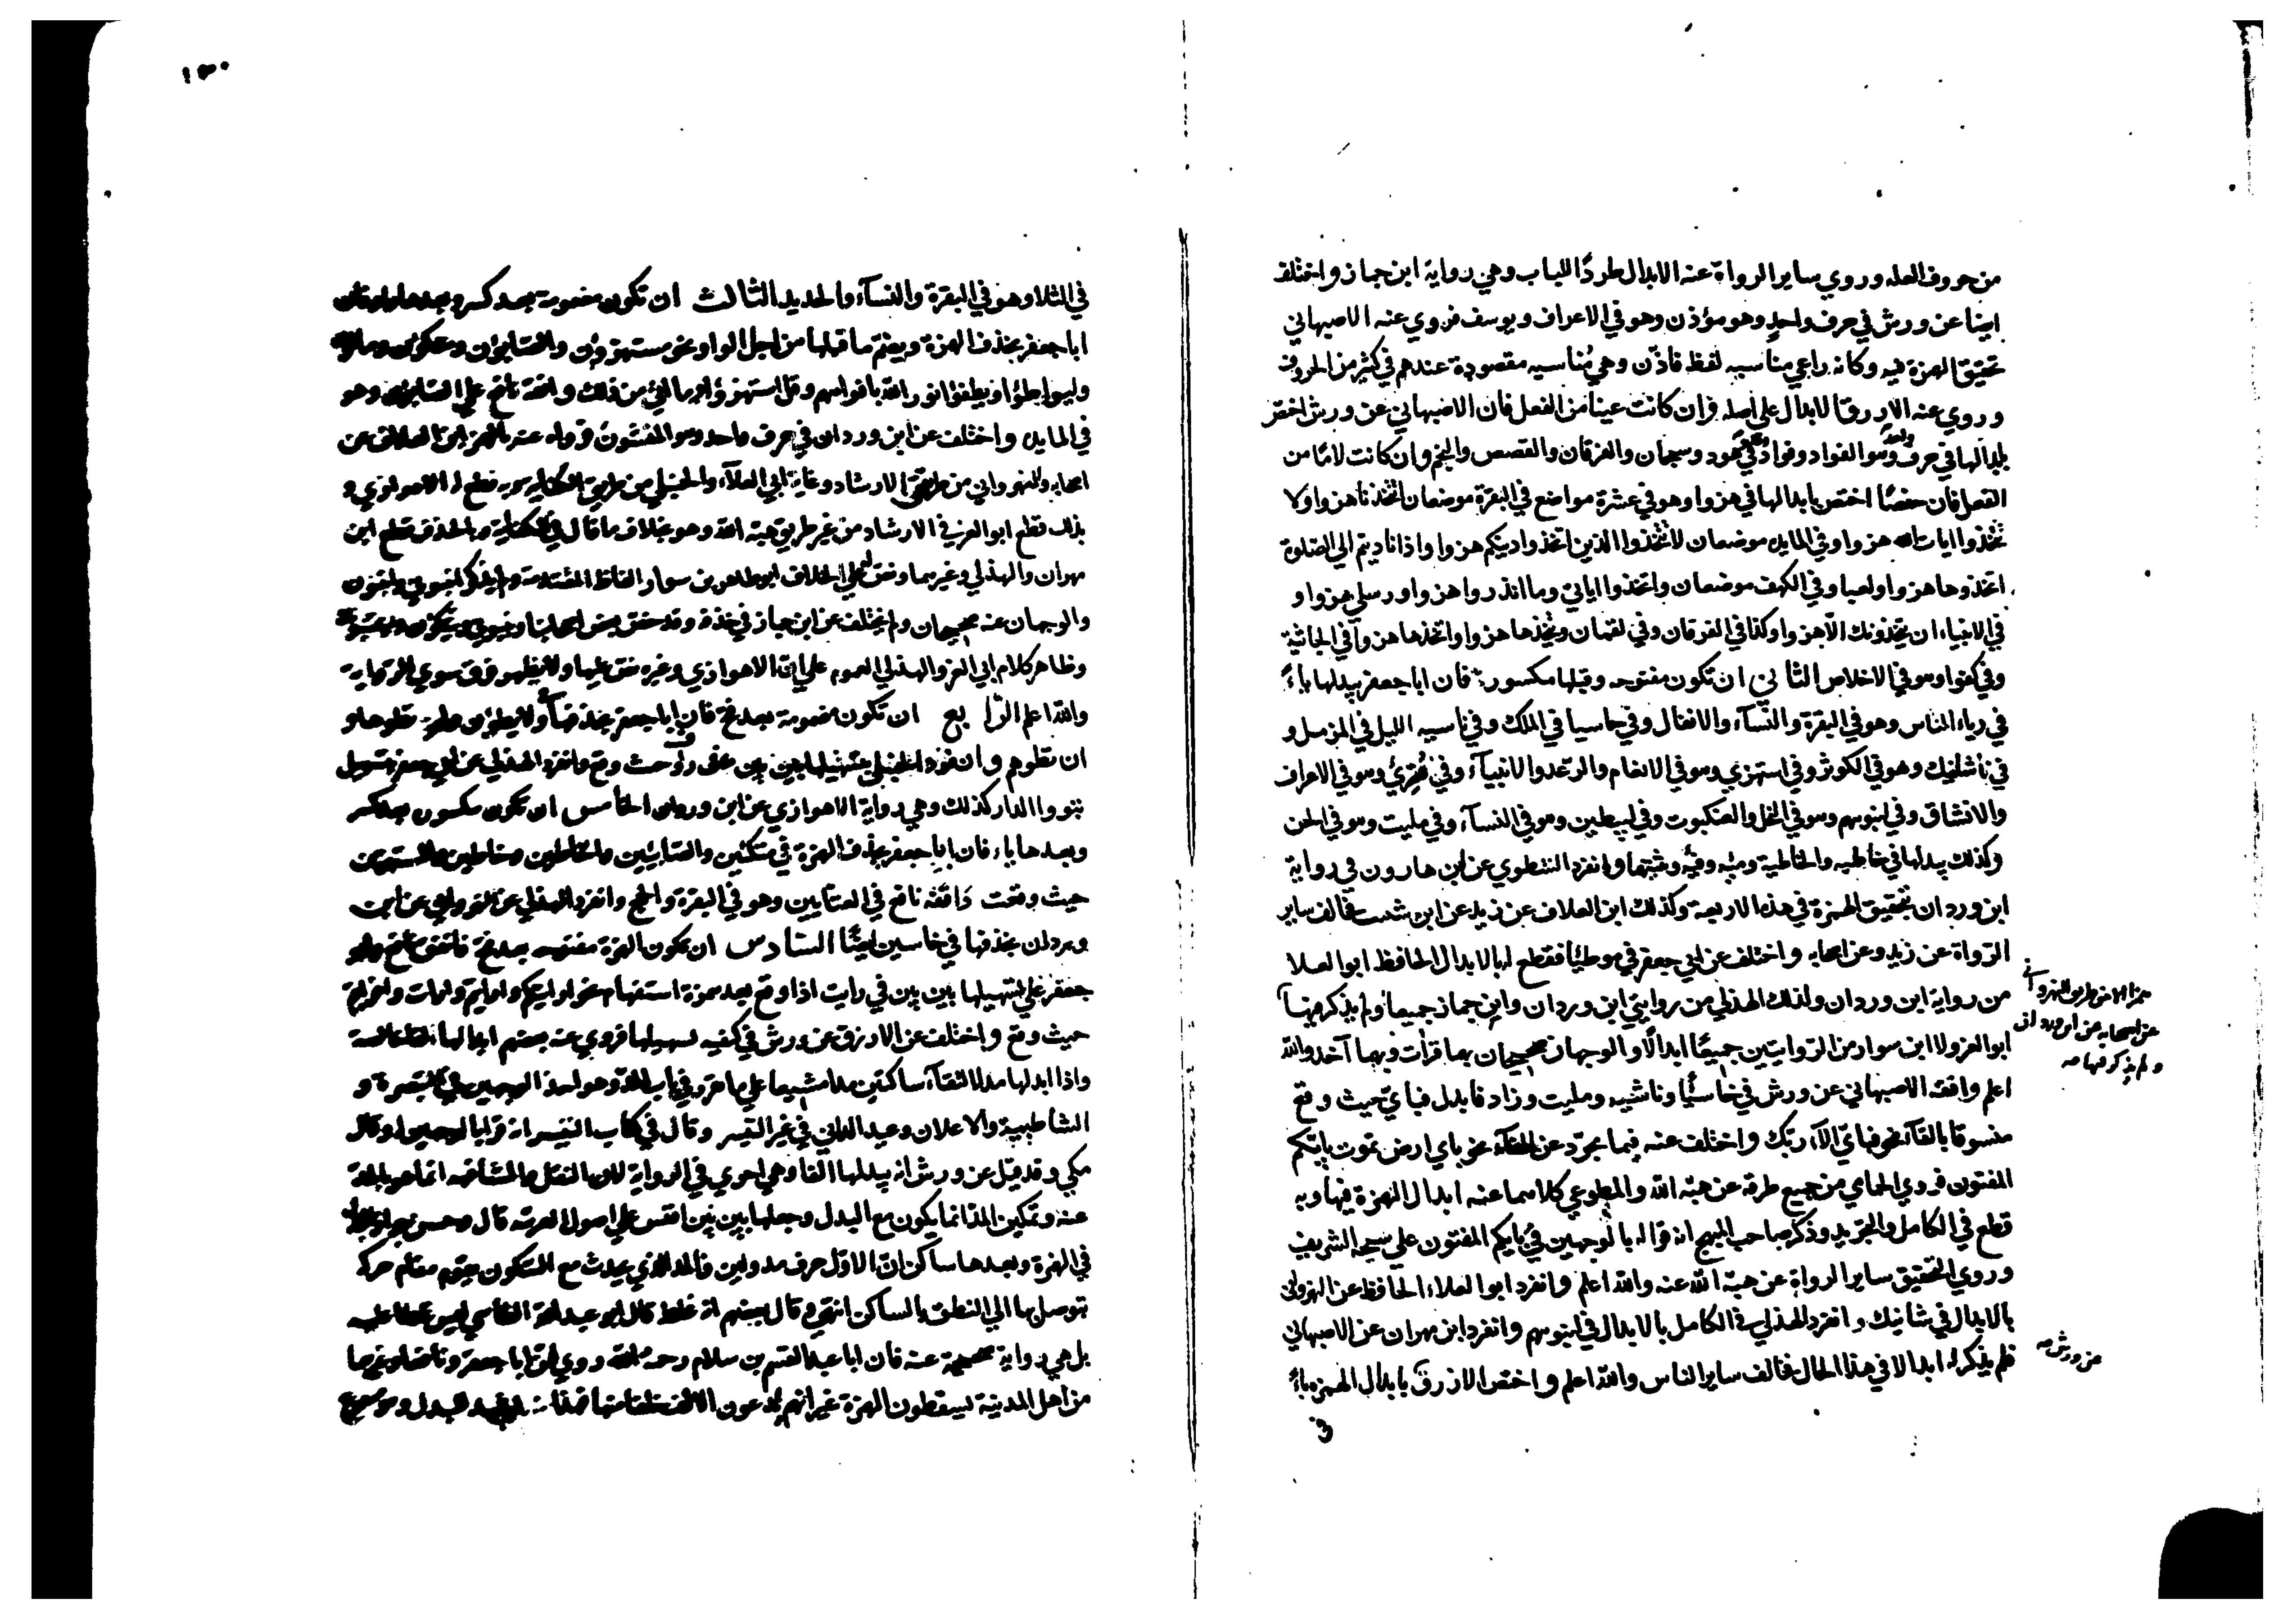 من حروف العله وروي ساير الرواة عنه الابدال طردًا للباب وهي رواية ابن جماز واختلف
ايضا عن ورش في حرف واحدٍ وهو مؤذن وهو في الاعراف ويوسف فروي عنه الاصبهاني
تحقيق الهمزة فيه وكانه راعي مناسبه لفظ فاذّن وهي مُناسبه مقصودة عندهم في كثير من الحروف
وروي عنه الازرق الابدال علي اصله وان كانت عينا من الفعل فان الاصبهاني عن ورش اختص
بابدالها في حرف واحد وهو الفواد وفواد وهو في هود وسبحان والفرقان والقصص والنجم وان كانت لامًا من
الفعل فان حفصًا اختص بابدالها في هزوا وهو في عشرة مواضع في البقرة موضعان اتتخذنا هزوا ولا
تتخذوا ايات الله هزوا وفي المايده موضعان لا تتخذوا الذين اتخذوا دينكم هزوا واذا ناديتم الي الصلوة
اتخذوها هزوا ولعبا وفي الكهف موضعان واتخذوا اياتي وما انذروا هزوا ورسلي هزوا و
في الانبياء ان يتخذونك الا هزوا وكذا في الفرقان وفي لقمان ويتخذها هزوا واتخذها هزوا في الجاثية
وفي كفوا وهو في الاخلاص الثاني ان تكون مفتوحه وقبلها مكسور فان اباجعفر يبدلها ياءً
في رياء الناس وهو في البقرة والنسآء والانفال وفي خاسيا في الملك وفي ناسيه الليل في المزمل و
في ناشانيك وهو في الكوثر وفي استهزي وهو في الانعام والرعد والانبيآء وفي قُرِئ وهو في الاعراف
والانشاق وفي لنبونهم وهو في النحل والعنكبوت وفي ليبطين وهو في النسآء وفي مليت وهو في الجن
وكذلك يبدلها في خاطيه والخاطية وميه وفيه وتثنيتهما وانفرد الشطوي عن ابن هارون في رواية
ابن وردان بتحقيق الهمزة في هذه الاربعة وكذلك ابن العلاف عن زيد عن ابن شبيب فخالف ساير
الرّواة عن زيد وعن اصحابه واختلف عن ابي جعفر في موطيًا فقطع له بالابدال الحافظ ابو العلا
من رواية ابن وردان وكذلك الهذلي من روايتي ابن وردان وابن جماز جميعًا ولم يذكر فيها
همزا الا من طريق النهرواني
عن اصحابه عن ابن وردان
ولم يذكر فيها صه
ابو العز ولا ابن سوار من الروايتين جميعًا ابدالًا والوجهان صحيحان بهما قرات وبهما آخذ والله
اعلم وافقه الاصبهاني عن ورش في خاسًيا وناشيه ومليت وزاد فابدل فباي حيث وقع
منسوقا بالفآء نحو فباي الآء ربك واختلف عنه فيما تجرّد عن الفآء نحو باي ارض تموت بايكم
المفتون فروي الحمامي من جميع طرقه عن هبة الله والمطوعي كلاهما عنه ابدال الهمزة فيها وبه
قطع في الكامل والتجريد وذكر صاحب المبهج انه قرا له بالوجهين في بايكم المفتون علي شيخه الشريف
وروي التحقيق ساير الرواة عن هبة الله عنه والله اعلم وانفرد ابو العلاء الحافظ عن النهرواني
بالابدال في شانيك وانفرد الهذلي في الكامل بالابدال في لنبونهم وانفرد ابن مهران عن الاصبهاني
عن ورش صه
فلم يذكر له ابدالا في هذا الحال فخالف ساير الناس والله اعلم واختص الازرق بابدال الهمزه ياءً
في
١٣٠
في لئلا وهو في البقرة والنسآء والحديد الثالث ان تكون مضمومة بعد كسر وبعدها واو فان
اباجعفر يحذف الهمزة ويضم ما قبلها من اجل الواو نحو مستهزؤن والصابؤن ومتكؤن ومالؤن
وليواطؤا ويطفؤا نور الله بافواههم وقل استهزؤا وما اتي من ذلك وافقه نافع علي الصابؤن وهو
في المايده واختلف عن ابن وردان في حرف واحد وهو المنشئون فرواه عنه بالهمز ابن العلاف عن
اصحابه والنهرواني من طريقي الارشاد وغاية ابي العلآء والحنبلي من طريق الكفاية وبه قطع له الاهوازي و
بذلك قطع ابو العز في الارشاد من غير طريق هبة الله وهو بخلاف ما قال في الكفاية وبالحذف قطع ابن
مهران والهذلي وغيرهما ونص علي الخلاف ابو طاهر بن سوار
والوجهان عنه صحيحان ولم يختلف عن ابن جماز في حذفه وقد خص بعض اصحابنا
وظاهر كلام ابي العز والهذلي العموم علي ان الاهوازي وغيره نص عليها ولا يظهر فرق سوي الرواية
والله اعلم الرابع ان تكون مضمومة بعد فتح فان اباجعفر يحذفها في ولا يطؤن
ان تطوهم وانفرد الحنبلي بتسهيلها بين بين في رؤف حيث وقع وانفرد الهذلي عن ابي جعفر بتسهيل
تبووا الدار كذلك وهي رواية الاهوازي عن ابن وردان الخامس ان تكون مكسورة بعد كسر
وبعدها ياء فان اباجعفر يحذف الهمزة في متكئين والصابئين والخاطئين وخاطئين والمستهزئين
حيث وقعت وافقه نافع في الصابيين وهو في البقرة والحج وانفرد الهذلي عن النهرواني عن ابن
وردان بحذفها في خاسين ايضًا السادس ان تكون الهمزة مفتوحه بعد فتح فاتفق نافع وابو
جعفر علي تسهيلها بين بين في رايت اذا وقع بعد همزة استفهام نحو
حيث وقع واختلف عن الازرق عن ورش في كيفيه تسهيلها فروي عنه بعضهم ابدالها الفا خالصة
واذا ابدلها مد لالتقآء ساكنين مدا مشبعا علي ما تقرر في باب المد وهو احد الوجهين في التبصرة و
الشاطبية والاعلان وعند الداني في غير التيسير وقال في كتاب التنبيه انه قرا بالوجهين وقال
مكي وقد قيل عن ورش انه يبدلها الفا وهي احري في الرواية لان النقل والمشافهه انما هو بالمد
عنه وتمكين المد انما يكون مع البدل وجعلها بين بين اقيس علي اصول العربيه قال وحسن جواز البدل
في الهمزة وبعدها ساكن ان الاول حرف مد ولين فالمد الذي يحدث مع السكون يقوم مقام حركه
يتوصل بها الي النطق بالساكن انتهي وقال بعضهم انه غلط قال ابو عبد الله الفاسي ليس غلطا عليه
بل هي رواية صحيحة عنه فان ابا عبيد القسم بن سلام رحمه الله روي ان اباجعفر ونافعا وغيرهما
من اهل المدينة يسقطون الهمزة غير انهم يدعون الالف خلفا منها فهذا يشهد بالبدل وهو مسموع